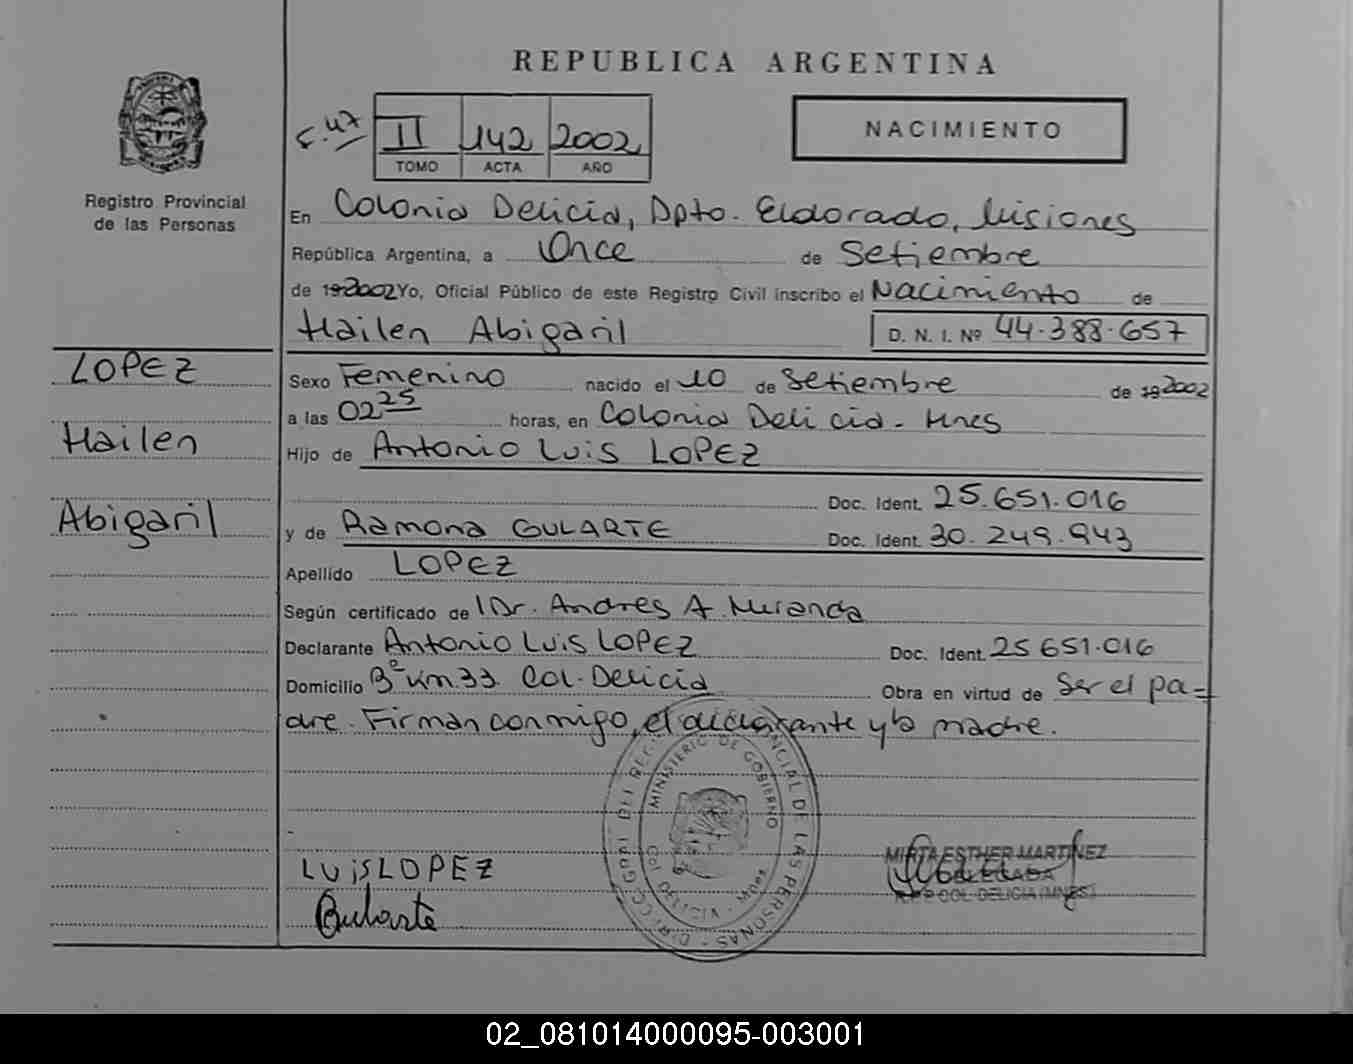 REPUBLICA ARGENTINA
F. 47
II 142 2002
TOMO ACTA AÑO
NACIMIENTO
Registro Provincial
de las Personas
En Colonia Delicia, Dpto. Eldorado, Misiones
República Argentina, a Once de Setiembre
de 192002 Yo, Oficial Público de este Registro Civil inscribo el Nacimiento de
Hailen Abigaril D. N. I. Nº 44.388.657
LOPEZ
Hailen
Abigaril
Sexo Femenino nacido el 10 de Setiembre de 192002
a las 02 25 horas, en Colonia Delicia - Mnes
Hijo de Antonio Luis LOPEZ
Doc. Ident. 25.651.016
y de Ramona GULARTE Doc. Ident. 30.249.943
Apellido LOPEZ
Según certificado de Dr. Andres A. Miranda
Declarante Antonio Luis LOPEZ Doc. Ident. 25 651.016
Domicilio Bº Km 33 Col. Delicia Obra en virtud de Ser el pa=
dre. Firman conmigo, el declarante y la madre.
MINISTERIO DE GOBIERNO
PROVINCIAL DE LAS PERSONAS
LUiS LOPEZ
Gularte
MIRTA ESTHER MARTINEZ
DELEGADA
R.P.P COL. DELICIA (MNES)
02_081014000095-003001